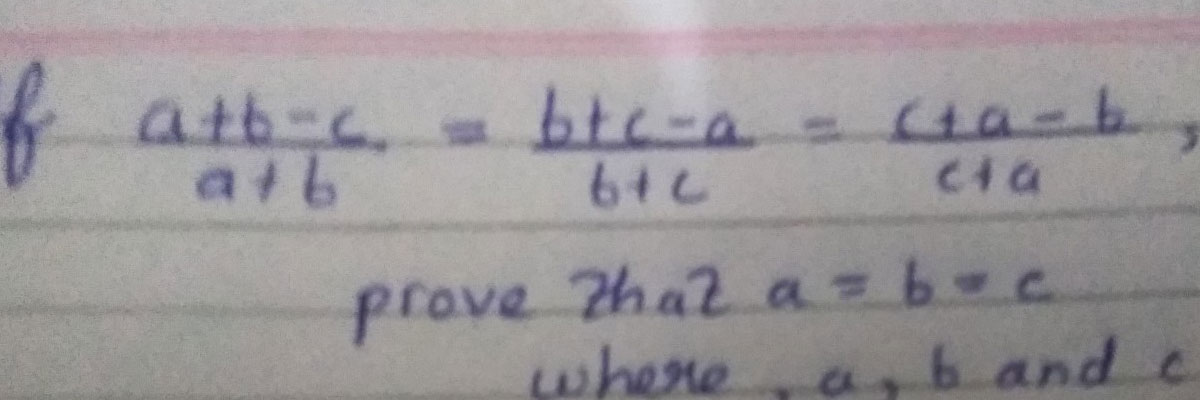 If (a+b-c)/(a+b) = (b+c-a)/(b+c) = (c+a-b)/(c+a),
prove that a = b = c
where, a, b and c